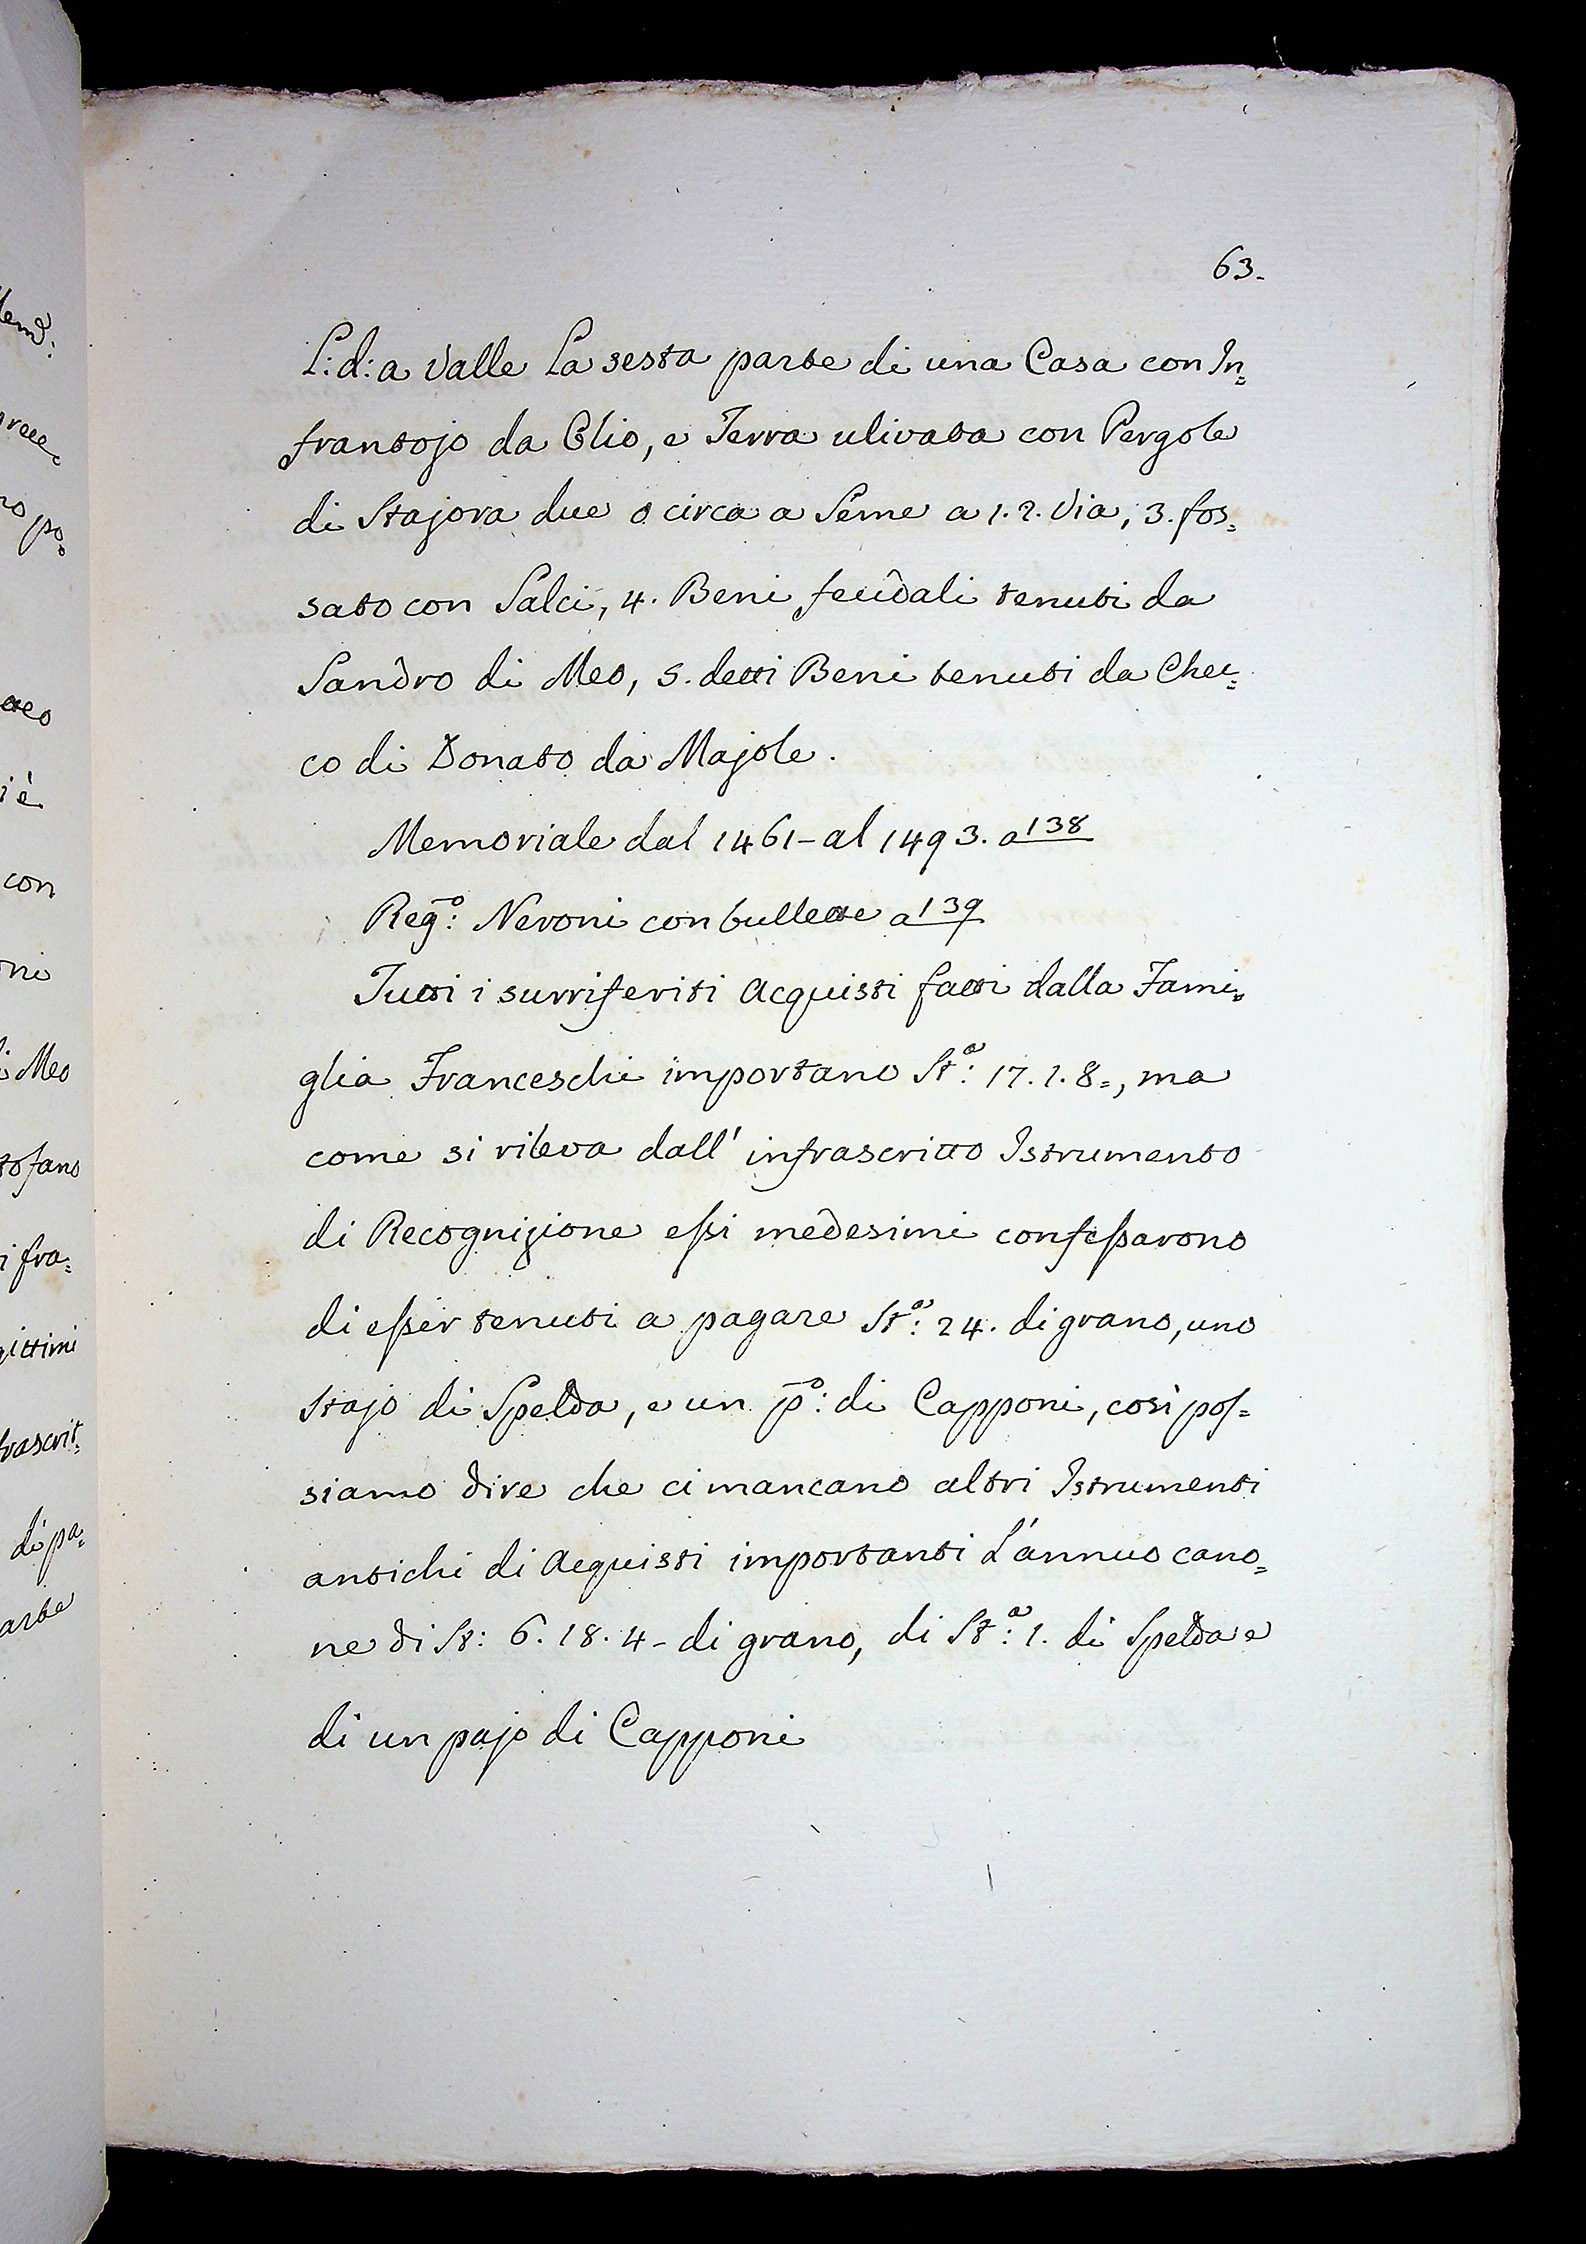 63.
L: d: a Valle La sesta parte di una Casa con In=
frantojo da Olio, e Terra ulivata con Pergole
di Stajora due o circa a Seme a 1. 2. Via, 3. fos=
sato con Salci, 4. Beni feudali tenuti da
Sandro di Meo, 5. detti Beni tenuti da Chec=
co di Donato da Majole.
Memoriale dal 1461- al 1493. a 138
Reg.º: Neroni con bullette a 139
Tutti i surriferiti Acquisti fatti dalla Fami=
glia Franceschi importano St.ª: 17. 1. 8=, ma
come si rileva dall' infrascritto Istrumento
di Recognizione essi medesimi confessarono
di esser tenuti a pagare St.ª: 24. di grano, uno
Stajo di Spelda, e un p.º: di Capponi, così pos=
siamo dire che ci mancano altri Istrumenti
antichi di Acquisti importanti L'annuo cano=
ne di St: 6. 18. 4- di grano, di St.ª: 1. di Spelda e
di un pajo di Capponi